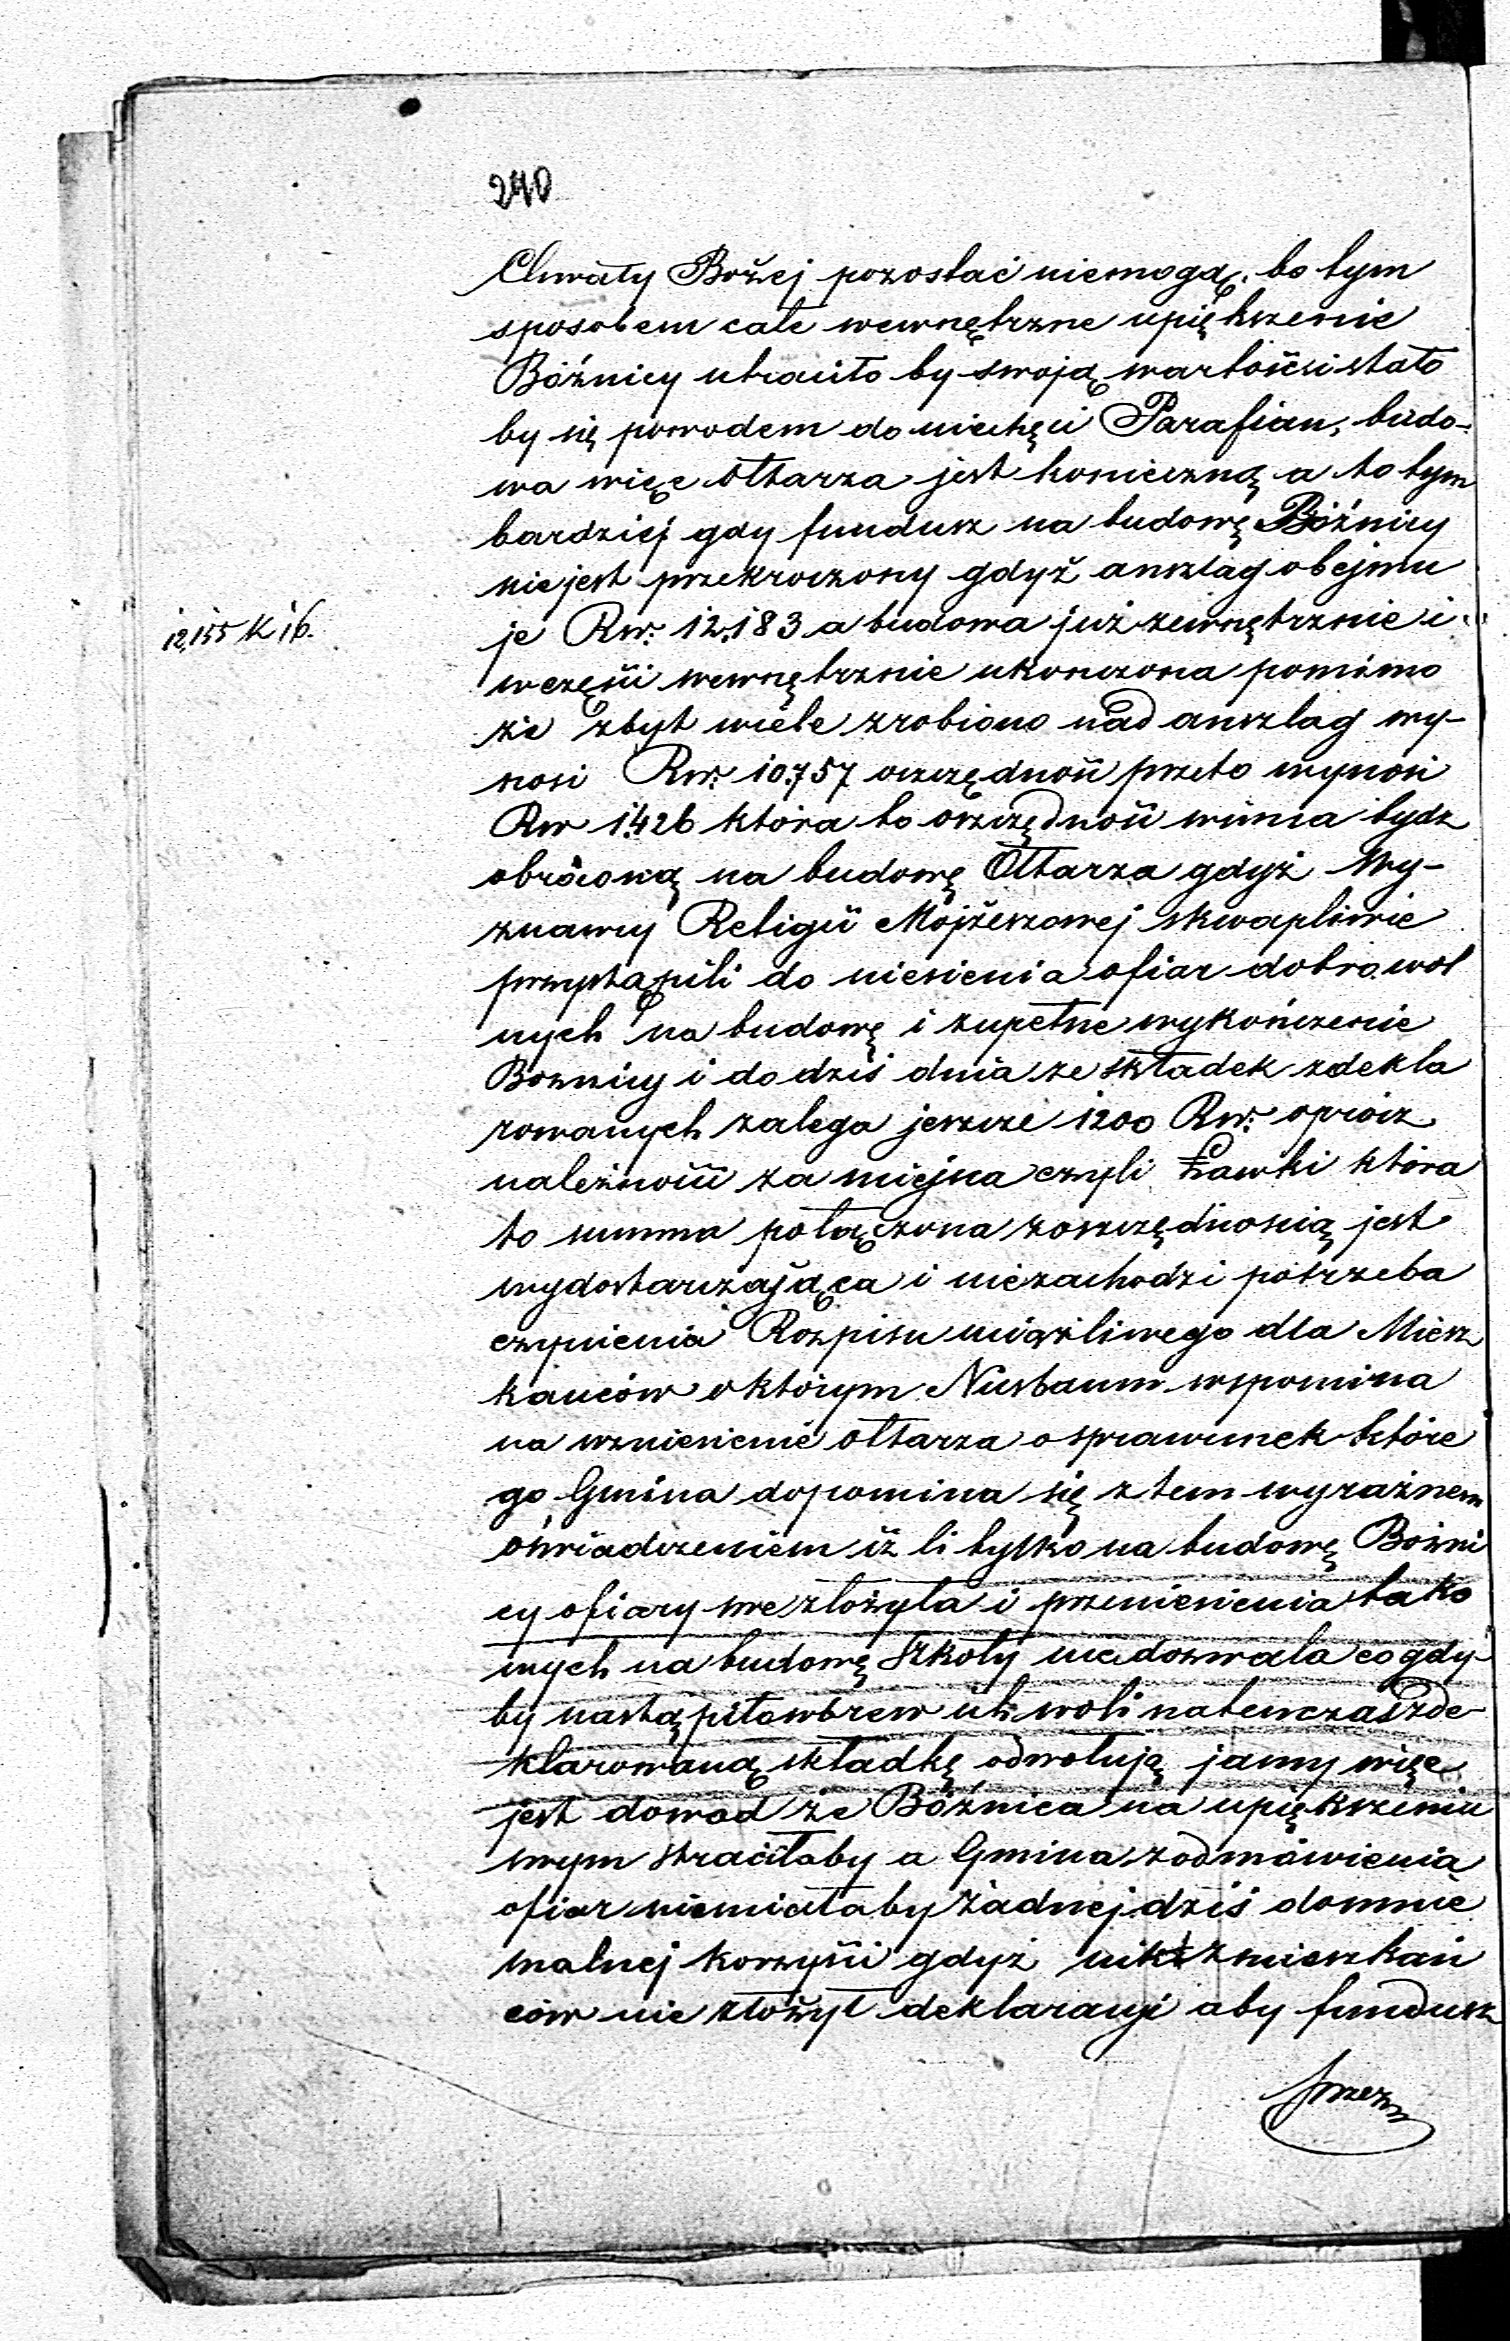 240
Chwały Bożej pozostać niemogą, bo tym
sposobem całe wewnętrzne upiększenie
Bóźnicy utraciło by swoją wartość i stało
by się powodem do niechęci Parafian, budo-
wa więc ołtarza jest konieczną a to tym
bardziej gdy fundusz na budowę Bóźnicy
niejest przekroczony gdyż anszlag obejmu
12,155 K 16.
je Rsr. 12,183 a budowa już zewnętrznie i
wczęści wewnętrznie ukonczona pomimo
że zbyt wiele zrobiono nad anszlag wy-
nosi Rsr. 10,757 oszczędność przeto wynosi
Rsr 1,426 która to oszczędność winna bydz
obróconą na budowę Ołtarza gdyż Wy-
znawcy Religii Mojżeszowej skwapliwie
przystąpili do niesienia ofiar dobrowol
nych na budowę i zupełne wykończenie
Boznicy i do dziś dnia ze składek zdekla
rowanych zalega jeszcze 1200 Rsr. oprócz
należności za miejsca czyli Ławki która
to summa połączona zoszczędnością jest
wydostarczającą i niezachodzi potrzeba
czynienia Rozpisu uciążliwego dla Miesz
kańców o którym Nusbaum wspomina
na wzniesienie ołtarza o sprawunek które
go Gmina dopomina się z tem wyraźnem
oświadczeniem iż li tylko na budowę Bożni
cy ofiary swe złożyła i przeniesienia tako
wych na budowę Szkoły niedozwala co gdy-
by nastąpiło wbrew ich woli natenczas zde-
klarowaną składkę odwołują jawny więc
jest dowod że Bóźnica na upiększeniu
swym straciłaby a Gmina zodmówienia
ofiar niemiałaby żadnej dziś domnie
malnej korzyści gdyż nikt z mieszkań
ców nie złożył deklaracyi aby fundusz
przezn